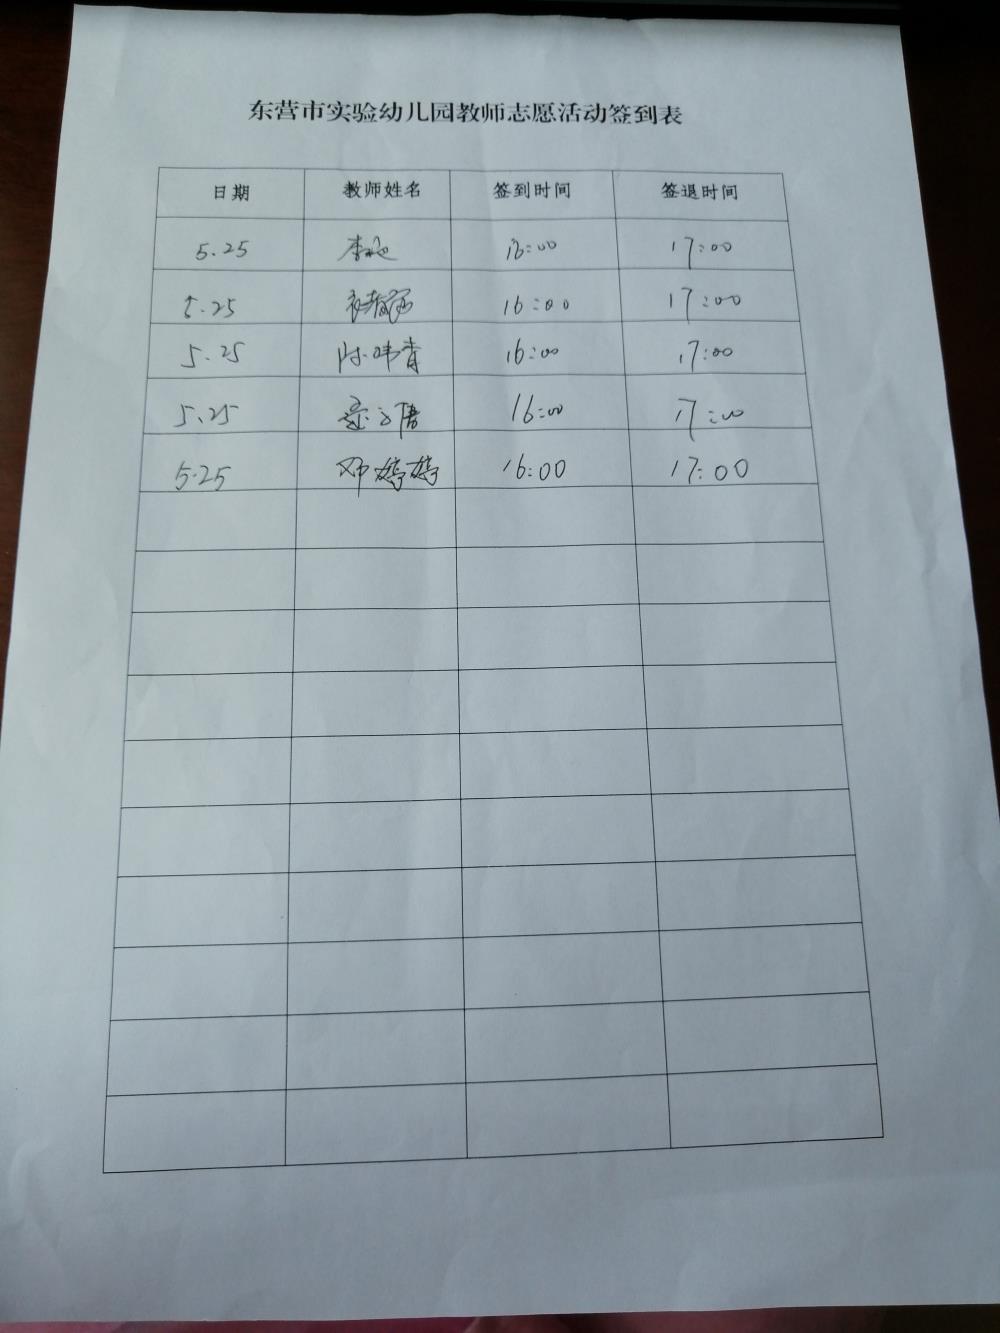 东营市实验幼儿园教师志愿活动签到表
日期 教师姓名 签到时间 签退时间
5.25 李 16:00 17:00
5.25 16:00 17:00
5.25 陈玮青 16:00 17:00
5.25 16:00 17:00
5.25 邓婷婷 16:00 17:00